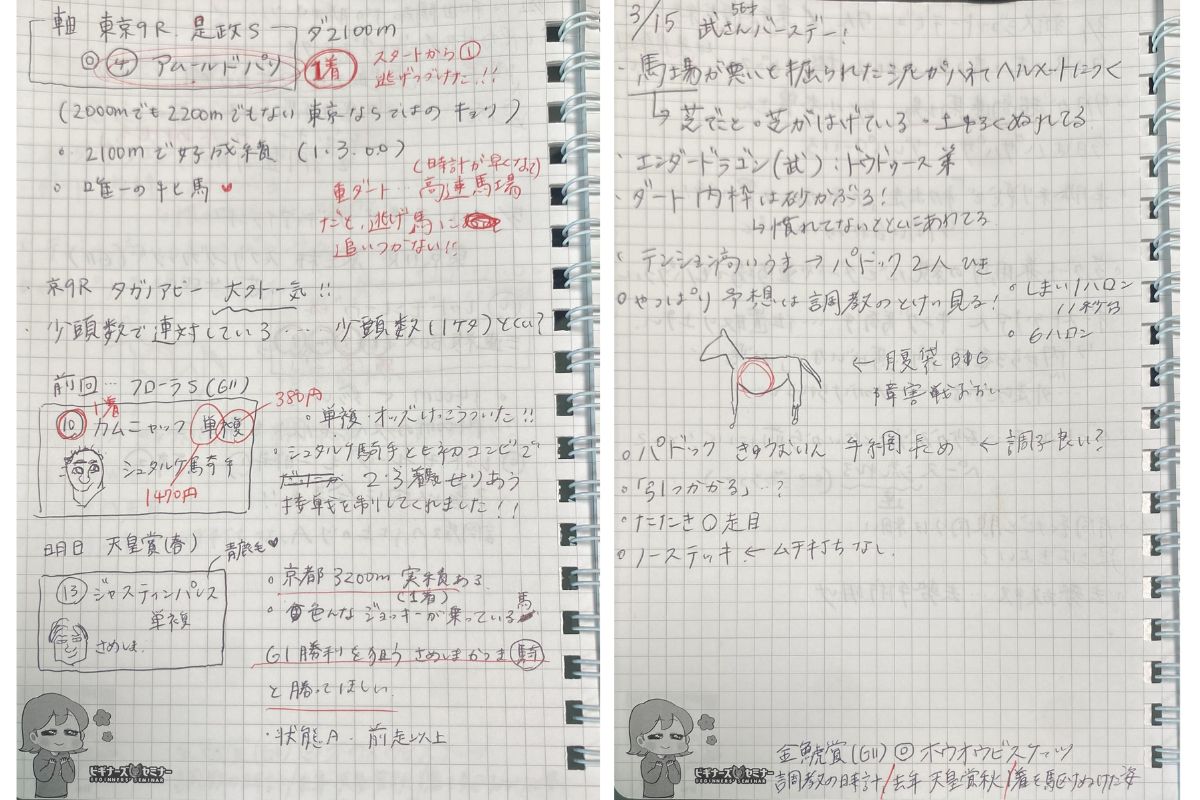 軸 東京9R 是政S ダ2100m
◎ ④ アムールドパリ 1着
スタートから①
逃げつづけた!!
(2000mでも2200mでもない東京ならではのキョリ)
・2100mで好成績 (1.3.0.0)
・唯一の牝馬♥
(時計が早くなって)
重ダート…高速馬場
だと、逃げ馬に
追いつかない!!
・京9R タガノアビー 大外一気!!
・少頭数で連対している… 少頭数(1ケタ)とくい?
前回… フローラS(GII)
⑩ 1着 カムニャック 単複 380円
シュタルケ騎手
1470円
・単複・オッズけっこうついた!!
・シュタルケ騎手とヒネのコンビで
2・3着せりあう
接戦を制してくれました!!
明日 天皇賞(春) 青鹿毛♥
⑬ ジャスティンパレス
単複
さめしま
・京都3200m実績ある
(1着)
・色んなジョッキーが乗っている馬
G1勝利を狙うさめしまかつま騎
と勝ってほしい
・状態A・前走以上
ビギナーズセミナー
BEGINNERS' SEMINAR
3/15 武さんバースデー! 56才
・馬場が悪いと掘られた泥がハネてヘルメートにつく
↳芝でだと・芝がはげている・土がぬれてる
・エンダードラゴン(武):ドウドゥース弟
・ダート 内枠は砂かぶる!
↳慣れてないととくにあわてる
・テンション高いうま→パドック2人ひき
・やっぱり予想は調教のとけい見る!
・しまい1ハロン
11秒台
・6ハロン
← 腹袋BIG
障害戦おおい
・パドック きゅうむいん 手綱長め ← 調子良い?
・「引っかかる」…?
・たたき○走目
・ノーステッキ ← ムチ打ちなし
ビギナーズセミナー
BEGINNERS' SEMINAR
金鯱賞(GII) ◎ ホウオウビスケッツ
調教の時計/去年 天皇賞秋/1着を駆けぬけた姿